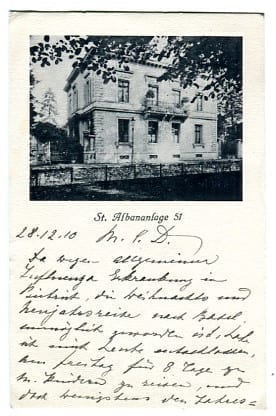 St. Albananlage 51
28.12.10 M. l. D.
Da wegen allgemeiner
Influenza Erkrankung in
die Weihnachts und
Neujahrsreise nach Basel
unmöglich geworden ist, habe
ich mich heute entschlossen,
am Freitag für 8 Tage zu
m. Kindern zu reisen, und
doch wenigstens den Jahres=